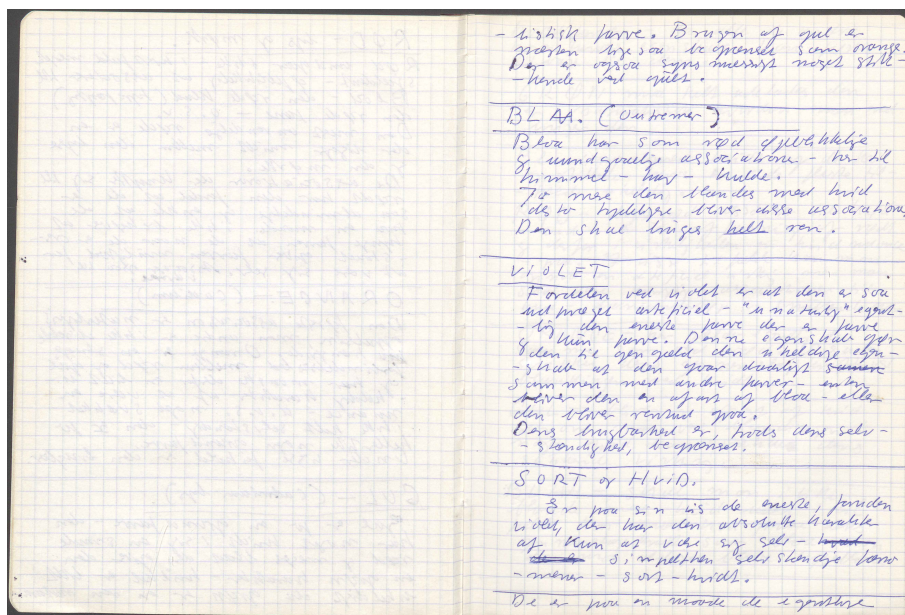 - listisk farve. Brugen af gul er
næsten ligesaa begrænset som orange.
Der er ogsaa synsmæssigt noget stik-
-kende ved gult.
BLAA. (Outremer)
Blaa har som rød øjeblikkelige
og uundgaaelige associationer - her til
himmel - hav - kulde.
Jo mere den blandes med hvid
desto tydeligere bliver disse associationer
Den skal bruges helt ren.
VIOLET
Fordelen ved violet er at den er saa
udpræget artificiel - "unaturlig" egent-
-lig den eneste farve der er farve
og kun farve. Denne egenskab gør
den til gengæld den uheldige egen-
-skab at den gaar daarligt samen
sammen med andre farver - enten
bliver den en afart af blaa - eller
den bliver graa.
Dens brugbarhed er, trods dens selv-
-stændighed, begrænset.
SORT og HVID.
Er paa sin vis de eneste, foruden
violet, der har den absolutte karakter
af kun at være sig selv -
simpelthen selvstændige fæno-
-mener - sort - hvidt.
De er paa en maade de egentlige